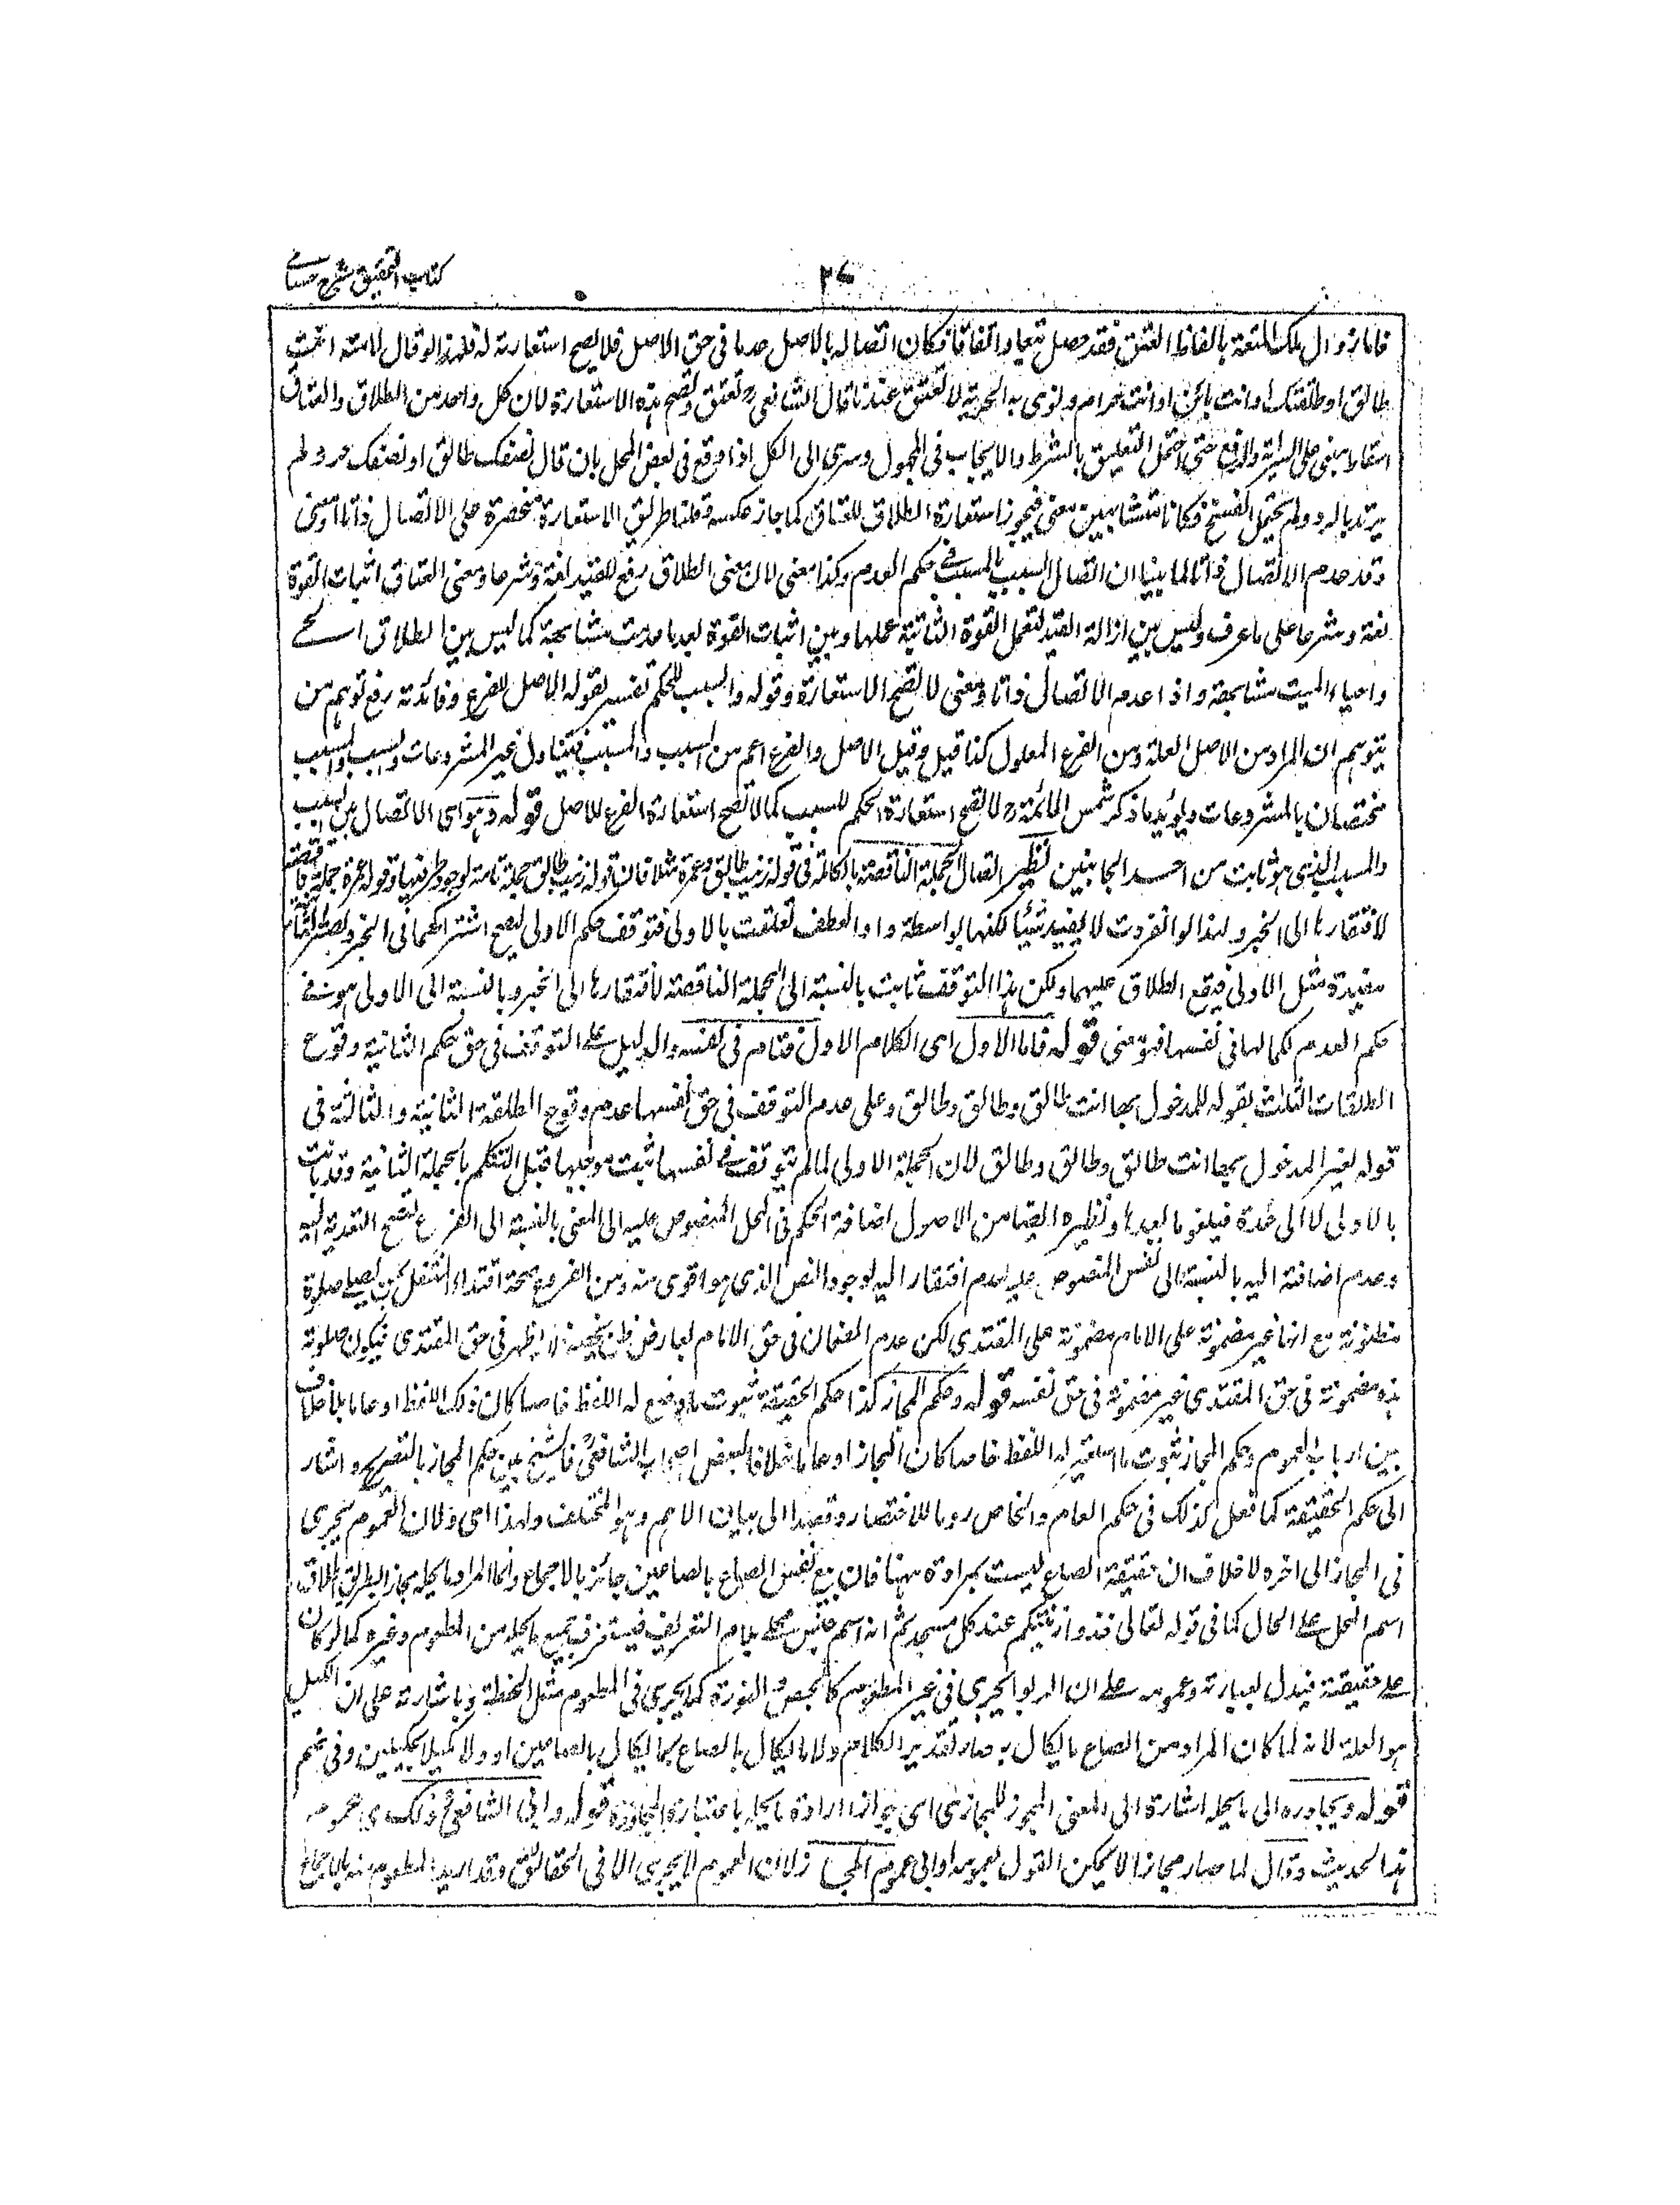 كتاب التحقيق شرح حسامى
٤٧
فاما زوال ملك المتعة بالفاظ العتق فقد حصل تبعا واتفاقا فكان اتصاله بالاصل عدما فى حق الاصل فلا يصح استعارته له فلهذا لو قال لامته انت
طالق او طلقتك او انت بائن او انت حرام ونوى به الحرية لا تعتق عندنا وقال الشافعى رح تعتق وتصح هذه الاستعارة لان كل واحد من الطلاق والعتاق
اسقاط مبنى على السراية واللزوم حتى احتمل التعليق بالشرط والايجاب فى المجهول وسرى الى الكل اذا وقع فى بعض المحل بان قال نصفك طالق او نصفك حر ولم
يرتد بالرد ولم يحتمل الفسخ فكانا متشابهين معنى فيجوز استعارة الطلاق للعتاق كما جاز عكسه وقلنا طريق الاستعارة منحصرة على الاتصال ذاتا او معنى
وقد عدم الاتصال ذاتا لما بينا ان اتصال السبب بالمسبب فى حكم العدم وكذا معنى لان معنى الطلاق رفع للقيد لغة وشرعا ومعنى العتاق اثبات القوة
لغة وشرعا على ما عرف وليس بين ازالة القيد لتعمل القوة الثابتة عملها وبين اثبات القوة بعد ما عدمت مشابهة كما ليس بين اطلاق الحى
واحياء الميت مشابهة واذا عدم الاتصال ذاتا ومعنى لا تصح الاستعارة وقوله والسبب للحكم تفسير لقوله الاصل للفرع وفائدته رفع توهم من
يتوهم ان المراد من الاصل العلة ومن الفرع المعلول كذا قيل وقيل الاصل والفرع اعم من السبب والمسبب فيتناول غير المشروعات والسبب والمسبب
مختصان بالمشروعات ويؤيده ما ذكر شمس الائمة رح لا تصح استعارة الحكم للسبب كما لا تصح استعارة الفرع للاصل قوله وهو اى الاتصال بين السبب
والمسبب الذى هو ثابت من احد الجانبين نظير اتصال الجملة الناقصة بالكاملة فى قوله زينب طالق وعمرة مثلا فان قوله زينب طالق جملة تامة لوجود طرفيها وقوله عمرة جملة ناقصة
لافتقارها الى الخبر ولهذا لو انفردت لا يفيد شيئا لكنها بواسطة واو العطف تعلقت بالاولى فتوقف حكم الاولى ليصح اشتراكهما فى الخبر وتصير الثانية
مفيدة مثل الاولى فيقع الطلاق عليهما ولكن هذا التوقف ثابت بالنسبة الى الجملة الناقصة لافتقارها الى الخبر وبالنسبة الى الاولى هو فى
حكم العدم لكمالها فى نفسها فهو معنى قوله فاما الاول اى الكلام الاول فتام فى نفسه والدليل على التوقف فى حق حكم الثانية وقوع
الطلقات الثلث بقوله للمدخول بها انت طالق وطالق وطالق وعلى عدم التوقف فى حق نفسها عدم وقوع الطلقة الثانية والثالثة فى
قوله لغير المدخول بها انت طالق وطالق وطالق لان الجملة الاولى لما لم تتوقف فى نفسها ثبت موجبها قبل التكلم بالجملة الثانية وقد بانت
بالاولى لا الى عدة فيلغو ما بعدها ونظيره ايضا من الاصول اضافة الحكم فى المحل المنصوص عليه الى المعنى بالنسبة الى الفرع لتصح التعدية اليه
وعدم اضافته اليه بالنسبة الى نفس المنصوص عليه لعدم افتقار اليه لوجود النص الذى هو اقوى منه ومن الفروع صحة اقتداء المتنفل بمن يصلى صلوة
مظنونة مع انها غير مضمونة على الامام مضمونة على المقتدى لكن عدم الضمان فى حق الامام لعارض ظن يخصه لا يظهر فى حق المقتدى فيكون صلوته
هذه مضمونة فى حق المقتدى غير مضمونة فى حق نفسه قوله وحكم المجاز كذا حكم الحقيقة ثبوت ما وضع له اللفظ خاصا كان ذلك اللفظ او عاما بلا خلاف
بين ارباب العموم وحكم المجاز ثبوت ما استعير له اللفظ خاصا كان المجاز او عاما خلافا لبعض اصحاب الشافعى فالشيخ بين حكم المجاز بالتصريح واشار
الى حكم الحقيقة كما فعل كذلك فى حكم العام والخاص روما للاختصار وقصدا الى بيان الاهم وهو المختلف ولهذا اى ولان العموم يجرى
فى المجاز الى اخره لا خلاف ان حقيقة الصاع ليست بمرادة ههنا فان بيع نفس الصاع بالصاعين جائز بالاجماع وانما المراد ما يحله مجازا بطريق اطلاق
اسم المحل على الحال كما فى قوله تعالى خذوا زينتكم عند كل مسجد ثم انه اسم جنس محلى بلام التعريف فيستغرق جميع ما يحله من المطعوم وغيره كما لو كان
على حقيقته فيدل بعبارته وعمومه على ان الربوا يجرى فى غير المطعوم كالجص والنورة كما يجرى فى المطعوم مثل الحنطة وباشارته على ان الكيل
هو العلة لانه لما كان المراد من الصاع ما يكال به صار تقدير الكلام ولا ما يكال بالصاع بما يكال بالصاعين او ولا كيلا بكيلين وفى نهم
قوله ويجاوره الى ما يحله اشارة الى المعنى المجوز للمجاز اى جواز ارادة ما يحله باعتبار المجاورة قوله وابى الشافعى رح ذلك اى عموم
هذا الحديث وقال لما صار مجازا لا يمكن القول بعمومه او ابى عموم المجاز لان العموم لا يجرى الا فى الحقائق وقد اريد المطعوم منه بالاجماع